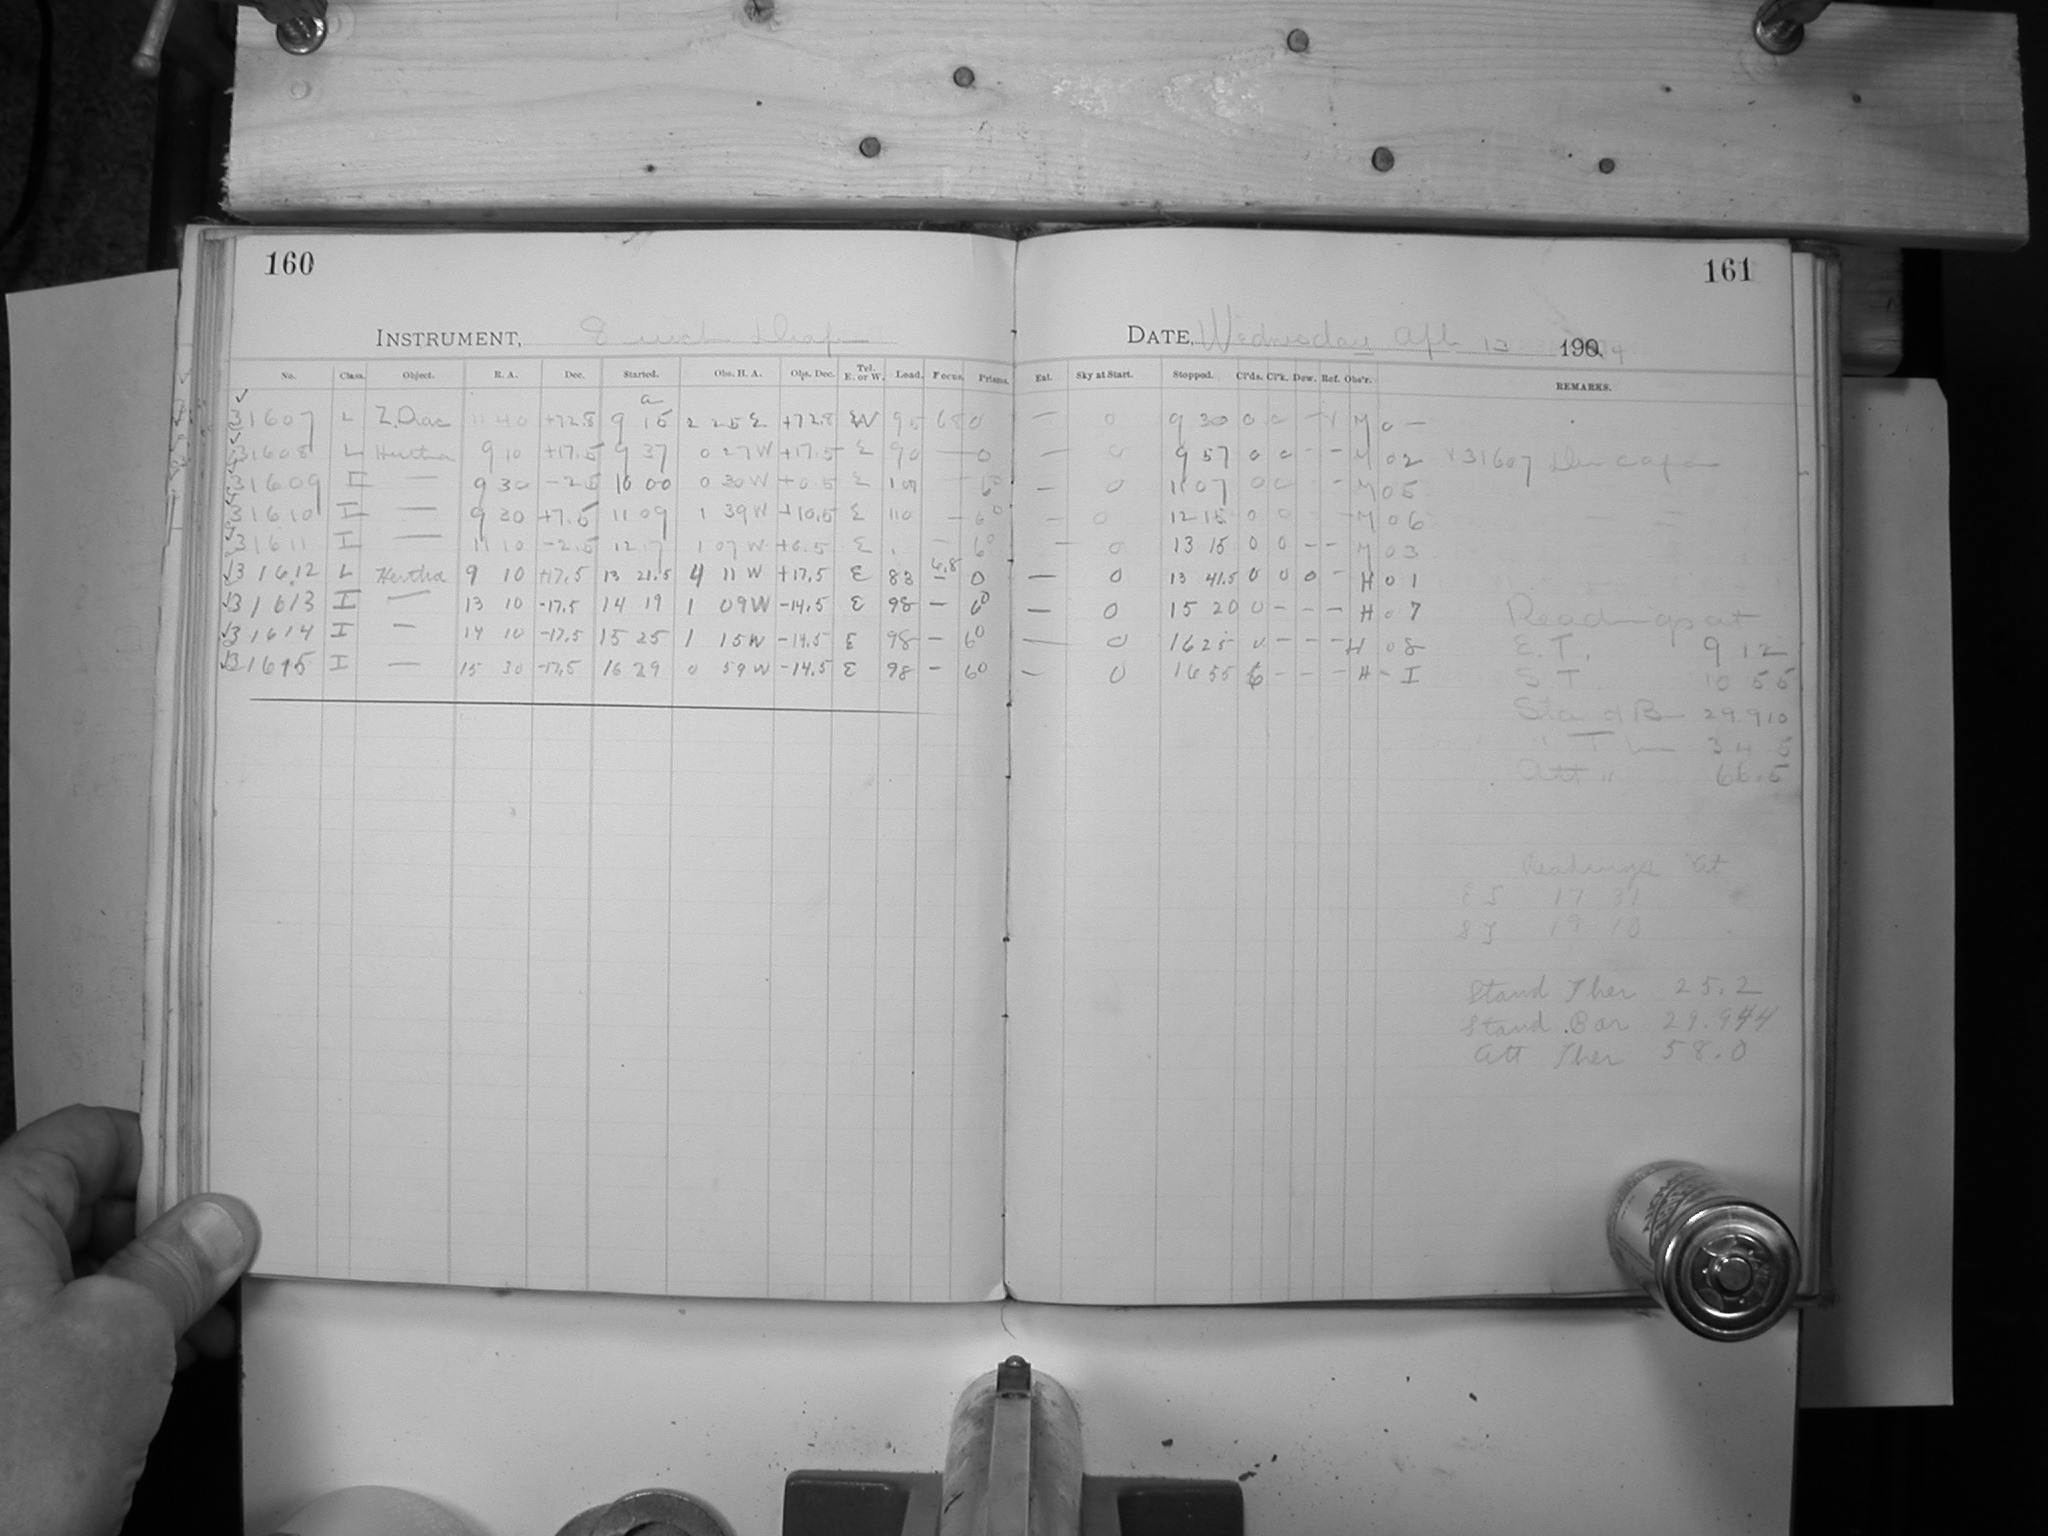 160
161
INSTRUMENT, 8 inch Draper
DATE, Wednesday Apl 13 1904
No. Class. Object. R. A. Dec. Started. Obs. H. A. Obs. Dec. Tel. E. or W. Load. Focus. Prisms. Eal. Sky at Start. Stopped. Cl'ds. Cl'k. Dew. Ref. Obs'r. REMARKS.
a
31607 L Z. Drac 11 40 +72.8 9 15 2 25 E +72.8 W 95 68 0 — 0 9 30 0 0 — M 0 —
31608 L Hertha 9 10 +17.5 9 37 0 27 W +17.5 E 90 — 0 — 0 9 57 0 0 - - M 02 31607
31609 I — 9 30 -2.5 10 00 0 30 W +0.5 E 60 — 0 11 07 0 0 M 05
31610 I — 9 30 +7.5 11 09 1 39 W +10.5 E 110 — 60 — 0 12 15 0 0 - M 06
31611 I — 11 10 -2.5 12 17 1 07 W +0.5 E — 60 — 0 13 15 0 0 - - M 03
31612 L Hertha 9 10 +17.5 13 21.5 4 11 W +17.5 E 83 6.8 0 — 0 13 41.5 0 0 0 - H 01
31613 I — 13 10 -17.5 14 19 1 09 W -14.5 E 98 — 60 — 0 15 20 0 - - - H 07
31614 I — 14 10 -17.5 15 25 1 15 W -14.5 E 98 — 60 — 0 16 25 0 - - - H 08
31615 I — 15 30 -17.5 16 29 0 59 W -14.5 E 98 — 60 — 0 16 55 - - - H - I
Readings at
E. T. 9 12
S T. 10 55
Stand B 29.910
" Th 34.5
Att " 66.5
Readings at
E T 17 31
S T 19 10
Stand Ther 25.2
Stand. Bar 29.944
Att Ther 58.0